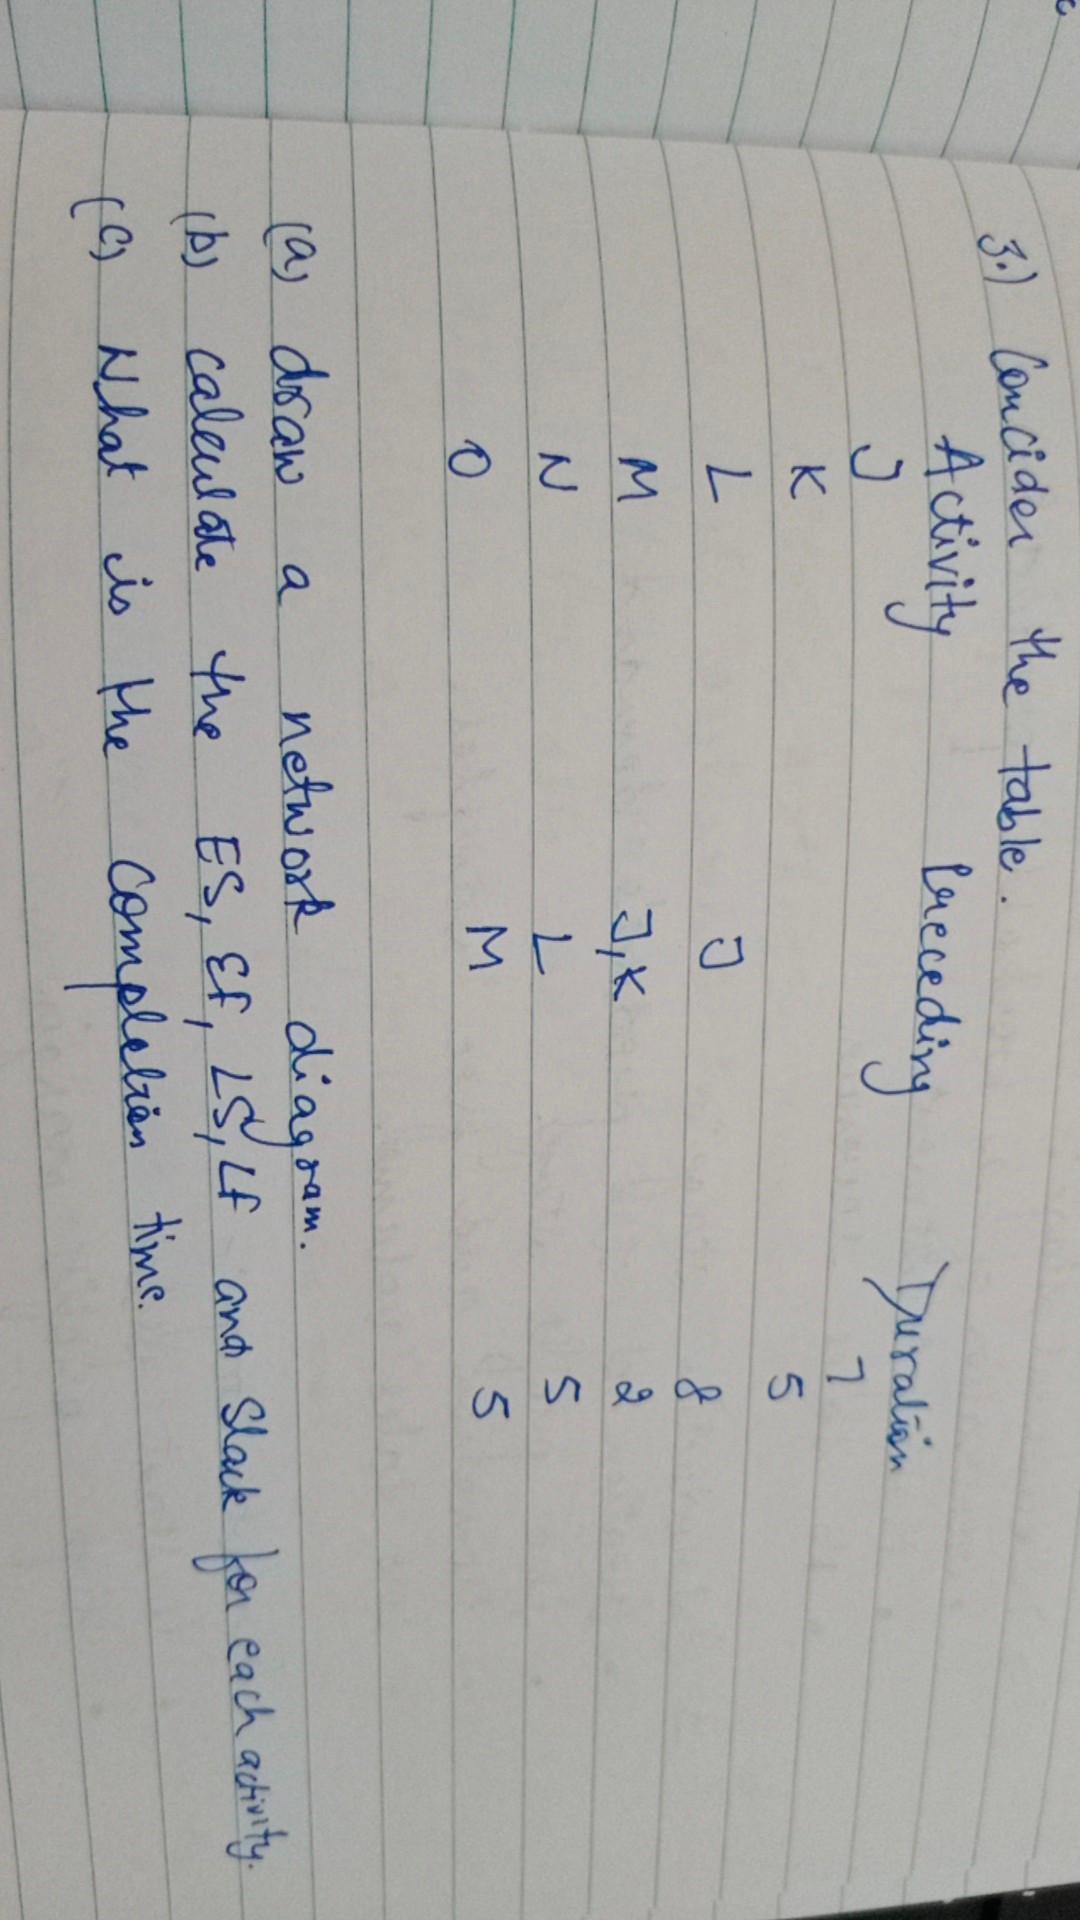 3.) Concider the table.
Activity Preceding Duration
J 7
K 5
L J 8
M J,K 2
N L 5
O M 5
(a) draw a network diagram.
(b) calculate the ES, EF, LS, LF and Slack for each activity.
(c) What is the Completion time.